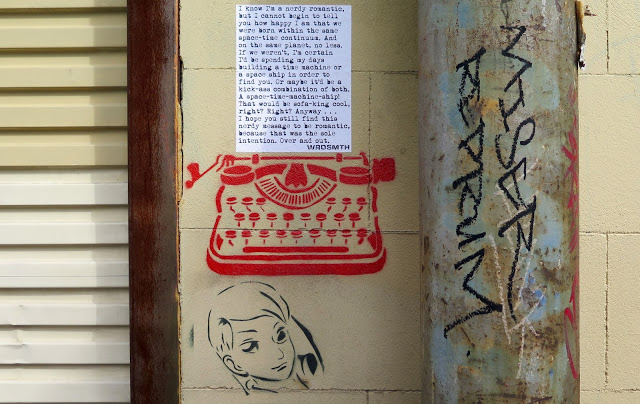 I know I'm a nerdy romantic,
but I cannot begin to tell
you how happy I am that we
were born within the same
space-time continuum. And
on the same planet, no less.
If we weren't, I'm certain
I'd be spending my days
building a time machine or
a space ship in order to
find you. Or maybe it'd be a
kick-ass combination of both.
A space-time-machine-ship!
That would be sofa-king cool,
right? Right? Anyway . . .
I hope you still find this
nerdy message to be romantic,
because that was the sole
intention. Over and out.
WRDSMTH
MISER
REDRUM